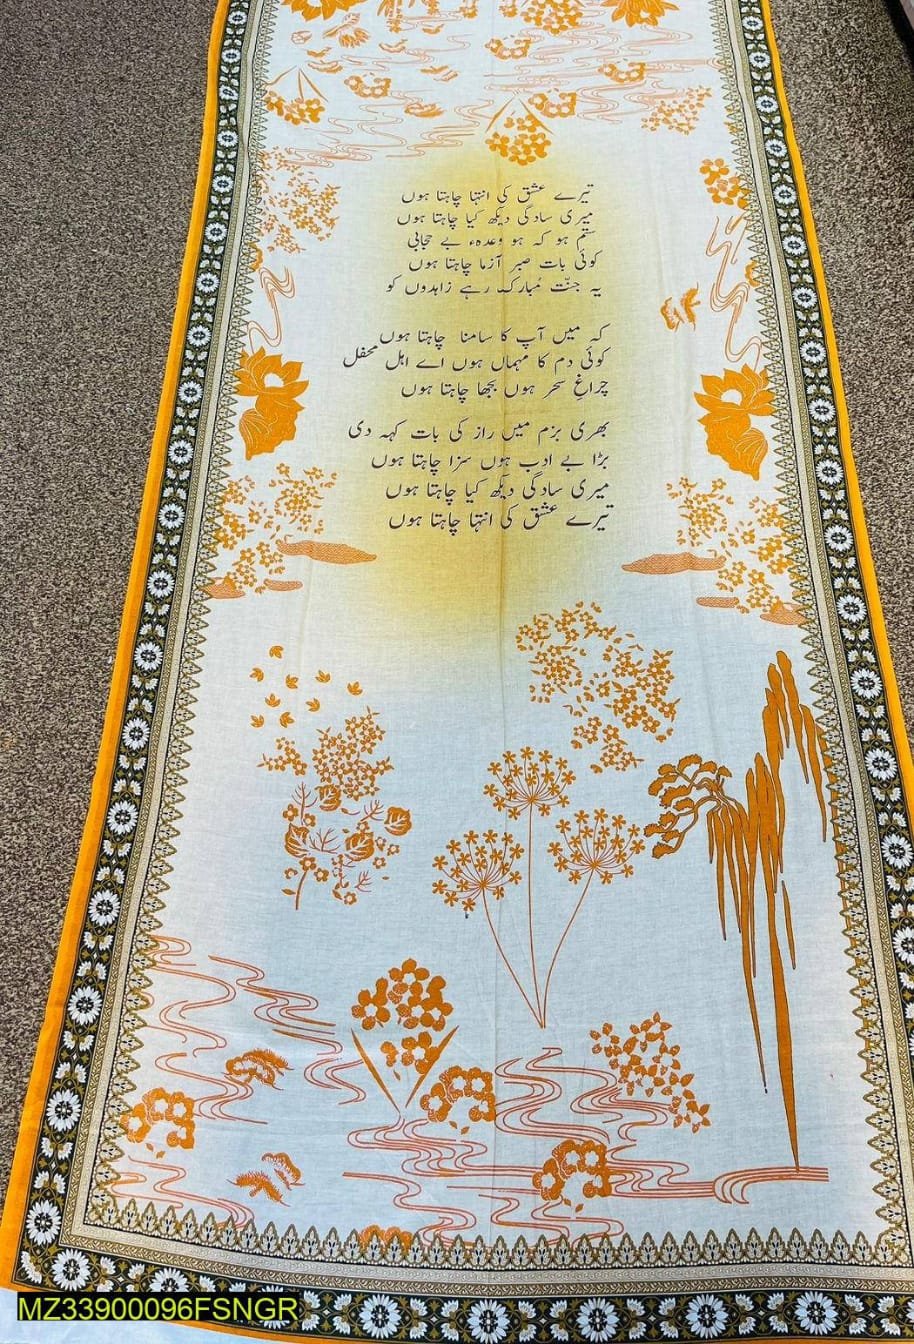 تیرے عشق کی انتہا چاہتا ہوں
میری سادگی دیکھ کیا چاہتا ہوں
ستم ہو کہ ہو وعدہء بے حجابی
کوئی بات صبر آزما چاہتا ہوں
یہ جنّت مُبارک رہے زاہدوں کو
کہ میں آپ کا سامنا چاہتا ہوں
کوئی دم کا مہماں ہوں اے اہل محفل
چراغِ سحر ہوں بجھا چاہتا ہوں
بھری بزم میں راز کی بات کہہ دی
بڑا بے ادب ہوں سزا چاہتا ہوں
میری سادگی دیکھ کیا چاہتا ہوں
تیرے عشق کی انتہا چاہتا ہوں
MZ33900096FSNGR